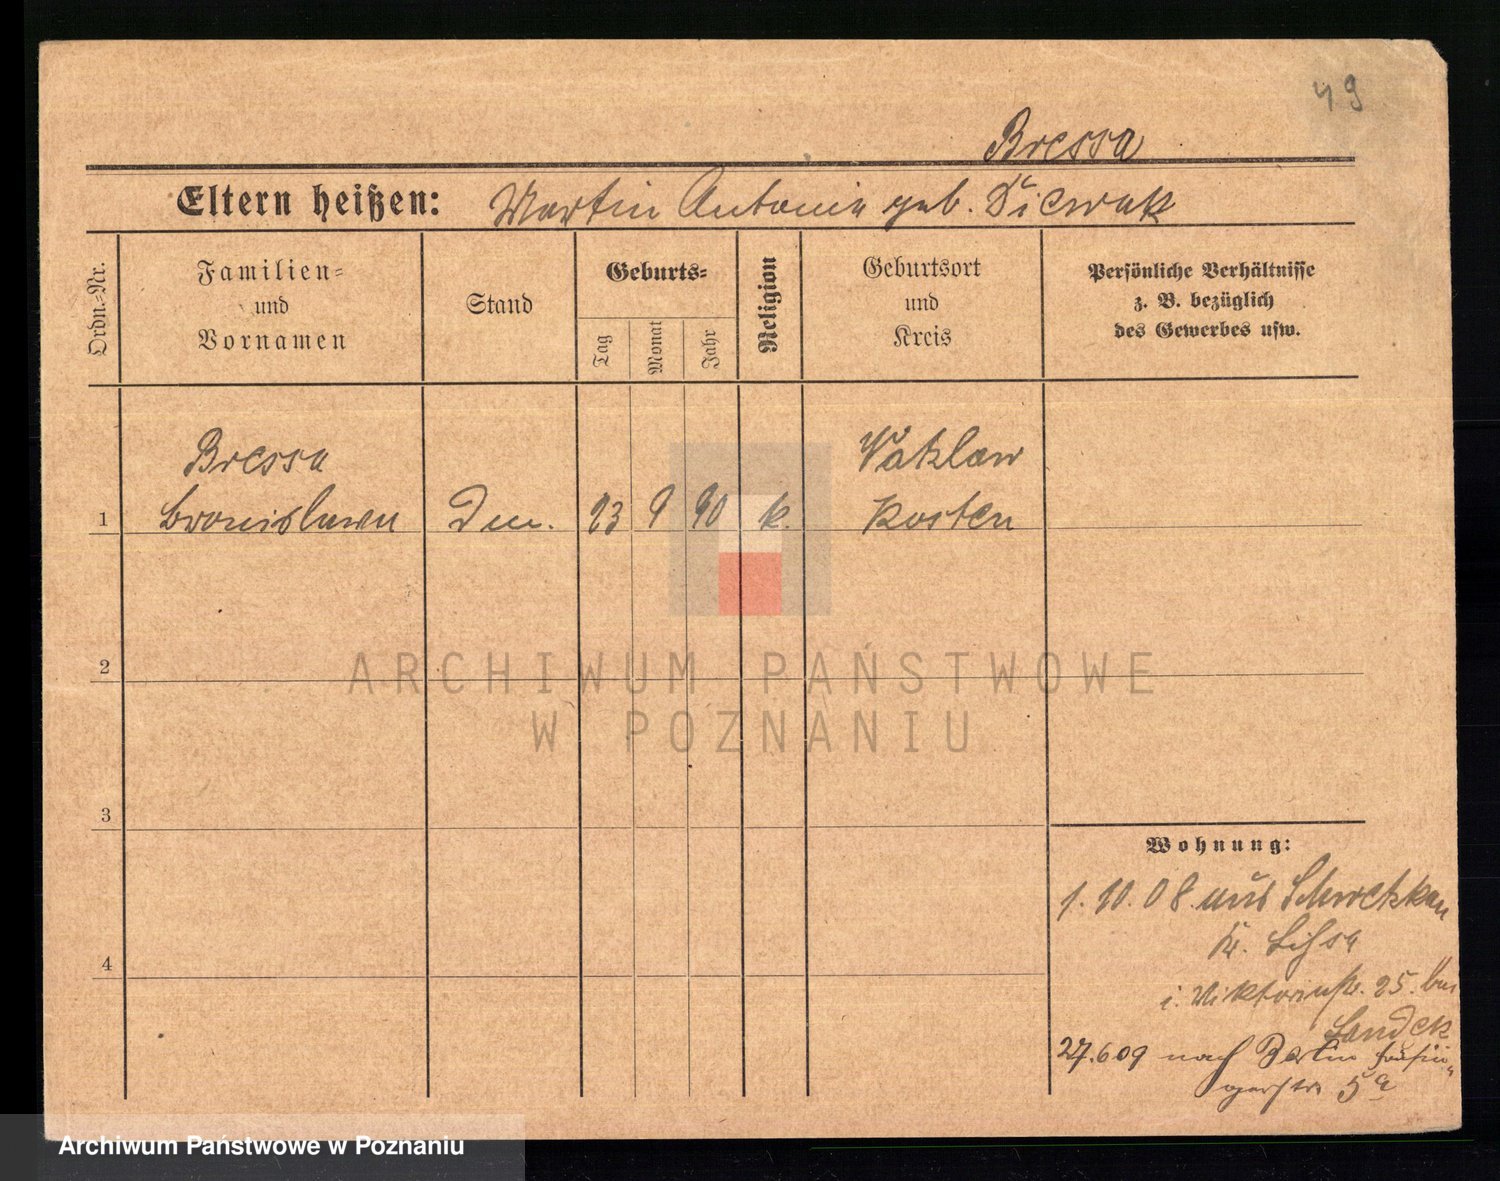 49
Bressa
Eltern heißen: Martin Antonie geb. Dicwak
Ordn.-Nr.
Familien-
und
Vornamen
Stand
Geburts-
Tag
Monat
Jahr
Religion
Geburtsort
und
Kreis
Persönliche Verhältnisse
z. B. bezüglich
des Gewerbes usw.
Bressa
Waklaw
1 Bronislawa 23 9 90 k. Kosten
2
ARCHIWUM PAŃSTWOWE
W POZNANIU
3
Wohnung:
1. 10. 08. aus Schwetzkau
Kr. Lissa
4
i. Viktoriastr. 25. bei
Landek
27.6 09 nach Berlin
5a
Archiwum Państwowe w Poznaniu